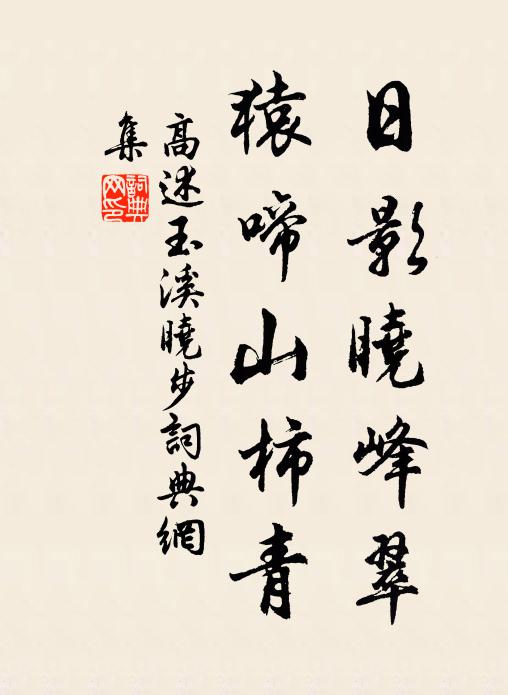 日影曉峰翠
猿啼山柿青
高述玉溪曉步詞典網
集
詞典網印